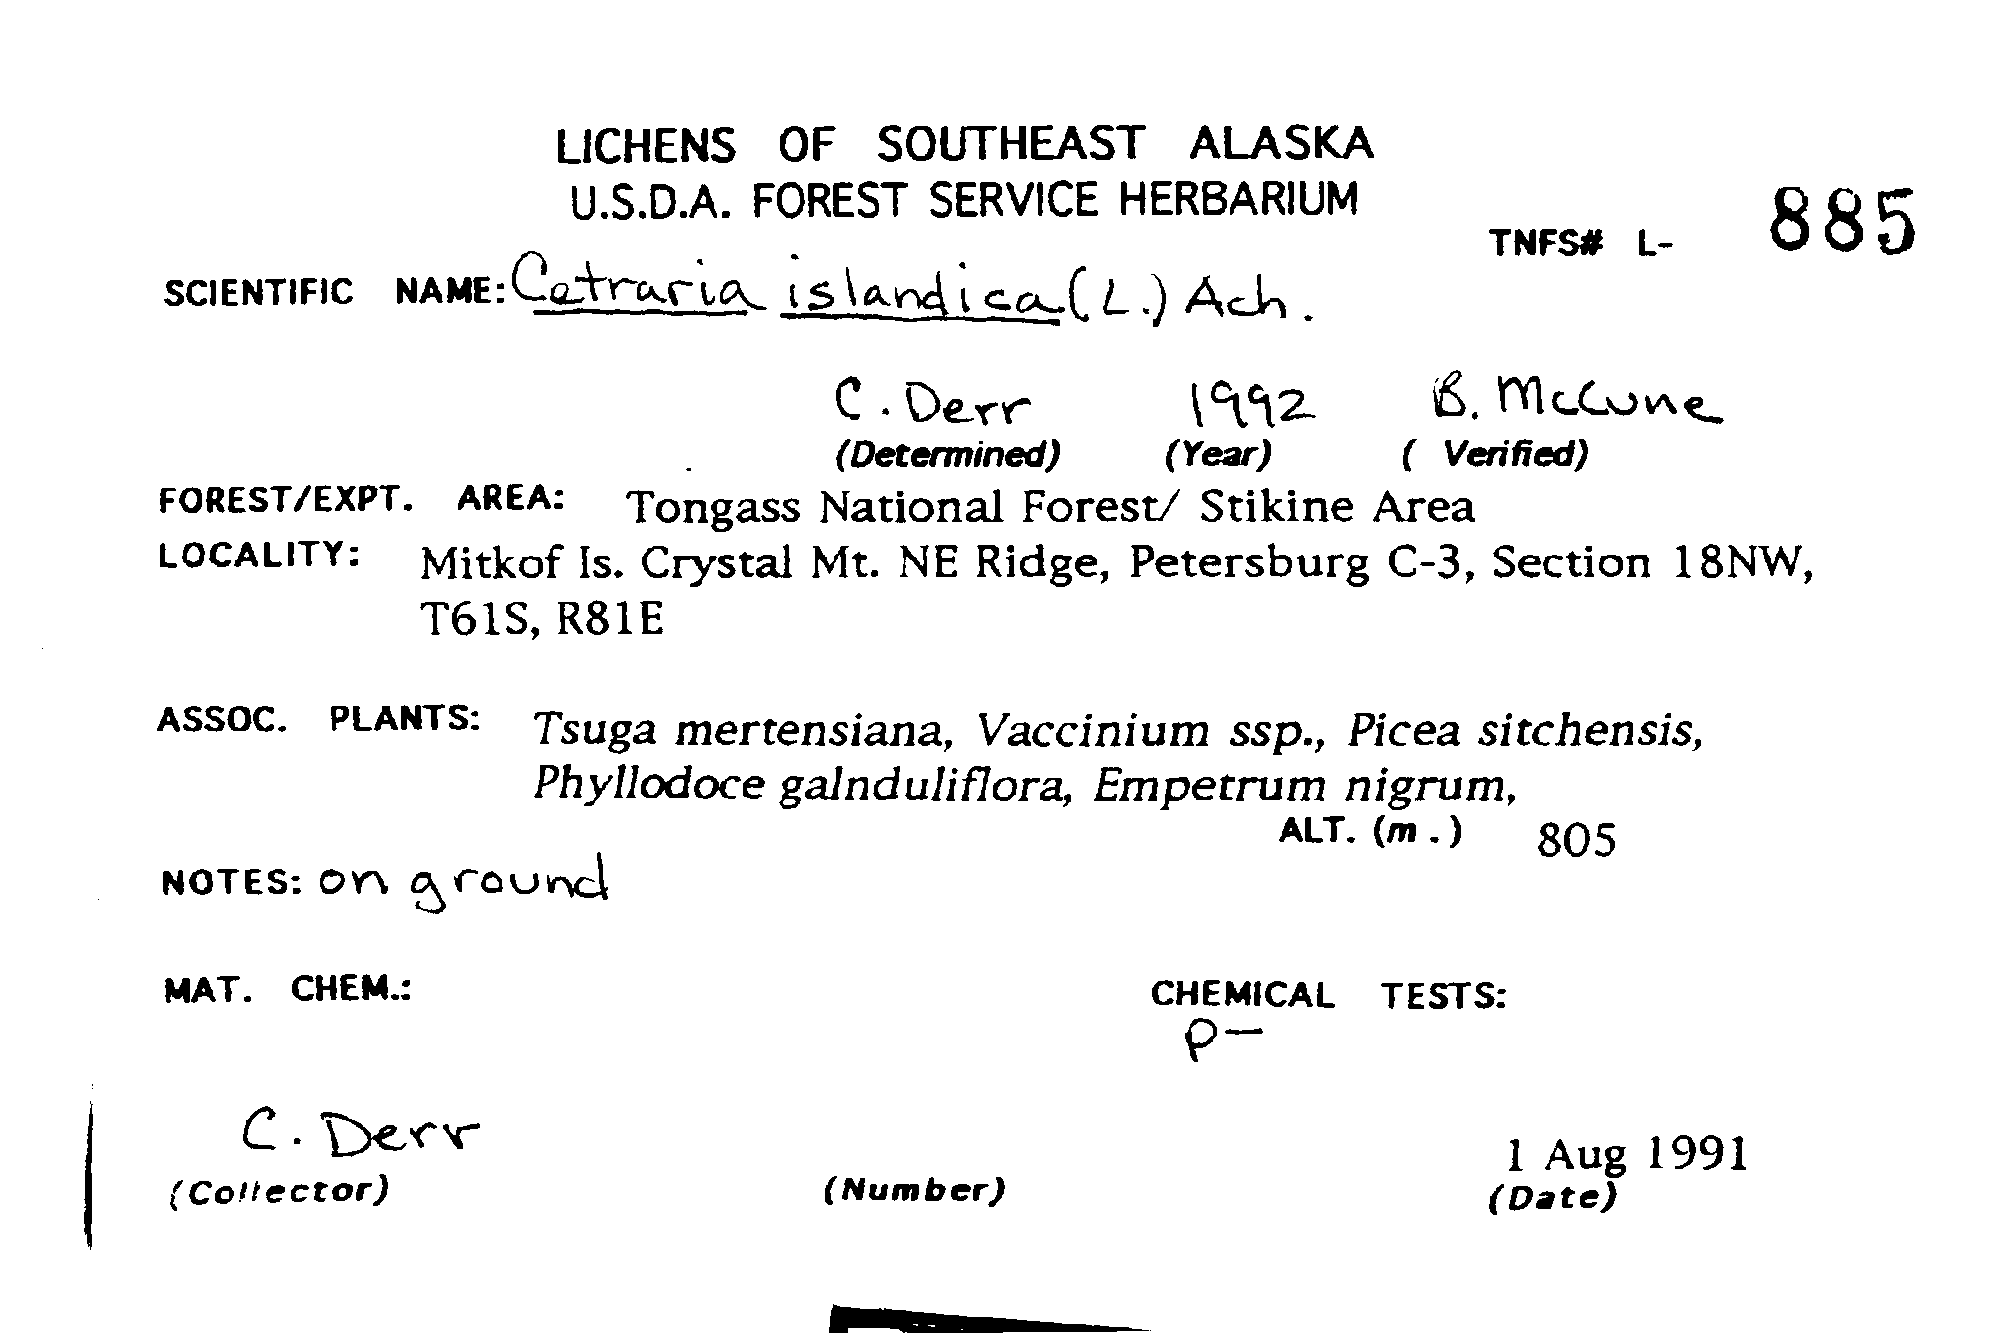 LICHENS OF SOUTHEAST ALASKA
U.S.D.A. FOREST SERVICE HERBARIUM
TNFS# L- 885
SCIENTIFIC NAME: Cetraria islandica (L.) Ach.
C. Derr 1992 B. McCune
(Determined) (Year) ( Verified)
FOREST/EXPT. AREA: Tongass National Forest/ Stikine Area
LOCALITY: Mitkof Is. Crystal Mt. NE Ridge, Petersburg C-3, Section 18NW,
T61S, R81E
ASSOC. PLANTS: Tsuga mertensiana, Vaccinium ssp., Picea sitchensis,
Phyllodoce galnduliflora, Empetrum nigrum,
ALT. (m.) 805
NOTES: on ground
MAT. CHEM.: CHEMICAL TESTS:
P-
C. Derr 1 Aug 1991
(Collector) (Number) (Date)